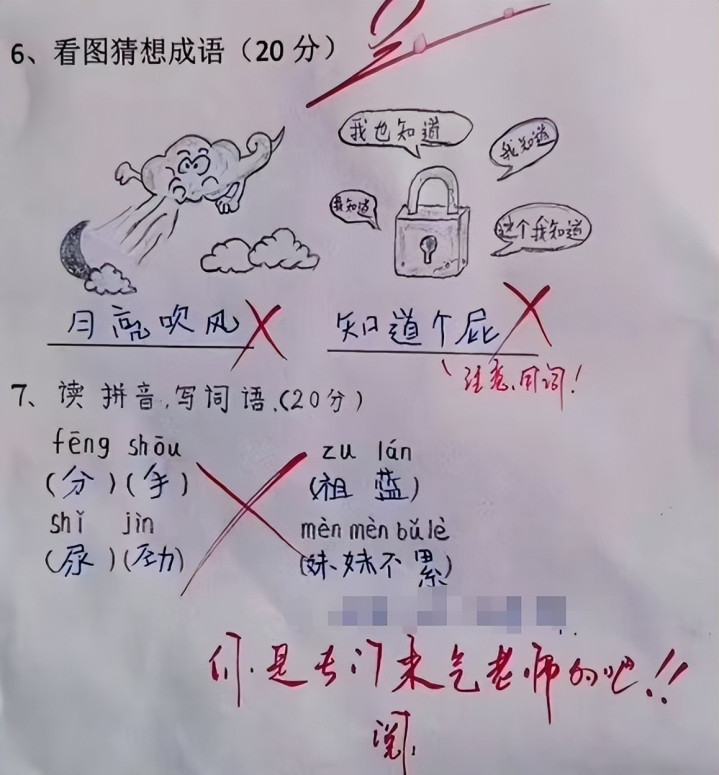 6、看图猜想成语（20 分）
我也知道
我知道
我知道
这个我知道
月亮吹风
知道个屁
注意用词！
7、读拼音,写词语.(20分)
fēng shōu zu lán
(分)(手) (祖 蓝)
shǐ jìn mèn mèn bǔ lè
(尿)(劲) (妹妹不累)
你是专门来气老师的吧!!